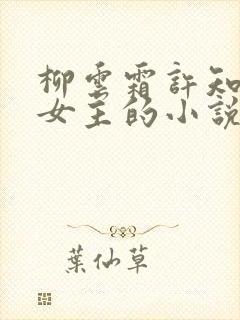 柳雲霜許知
女主的小說
葉仙草